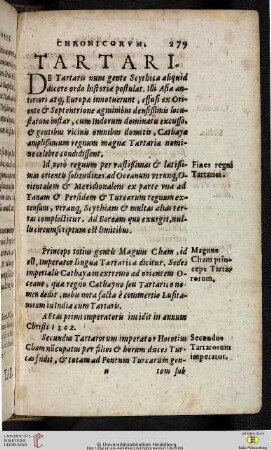 CHRONICORVM. 279
TARTARI.
DE Tartaris nunc gente Scythica aliquid
dicere ordo historiæ postulat. Illi Asiæ an-
teriori atq; Europæ innotuerunt, effusi ex Ori-
ente & Septentrione agminibus densissimis locu-
starum instar, cum Indorum dominatu excusso,
& gentibus vicinis omnibus domitis, Cathaya
amplissimum regnum magnæ Tartariæ nomi-
ne celebre condidissent.
Id vero regnum per vastissimas & latissi-
mas orientis solitudines ad Oceanum vtrunq; O-
rientalem & Meridionalem ex parte vna ad
Tanam & Persidem & Turcarum regnum ex-
tensum, vtranq; Scythiam & multas alias ter-
ras complectitur. Ad Boream quo exurgit, nul-
lis circumscriptum est limitibus.
Fines regni
Tartarici.
Princeps totius gentis Magnus Cham, id
est, Imperator lingua Tartarica dicitur. Sedes
imperialis Cathaya in extremo ad orientem O-
ceano, quæ regno Cathayno seu Tartarico no-
men dedit, nobis nota facta è commertio Lusita-
norum in India cum Tartaris.
Magnus
Cham prin-
ceps Tarta-
rorum.
Aetas primi imperatoris incidit in annum
Christi 1202.
Secundus Tartarorum imperator Hocotius
Cham nũcupatus per filios & horum duces Tur-
cas fudit, & totam ad Pontum Turcarum gen-
Secundus
Tartarorum
imperator.
tem sub
UNIVERSITÄTS-
BIBLIOTHEK
HEIDELBERG
© Universitätsbibliothek Heidelberg